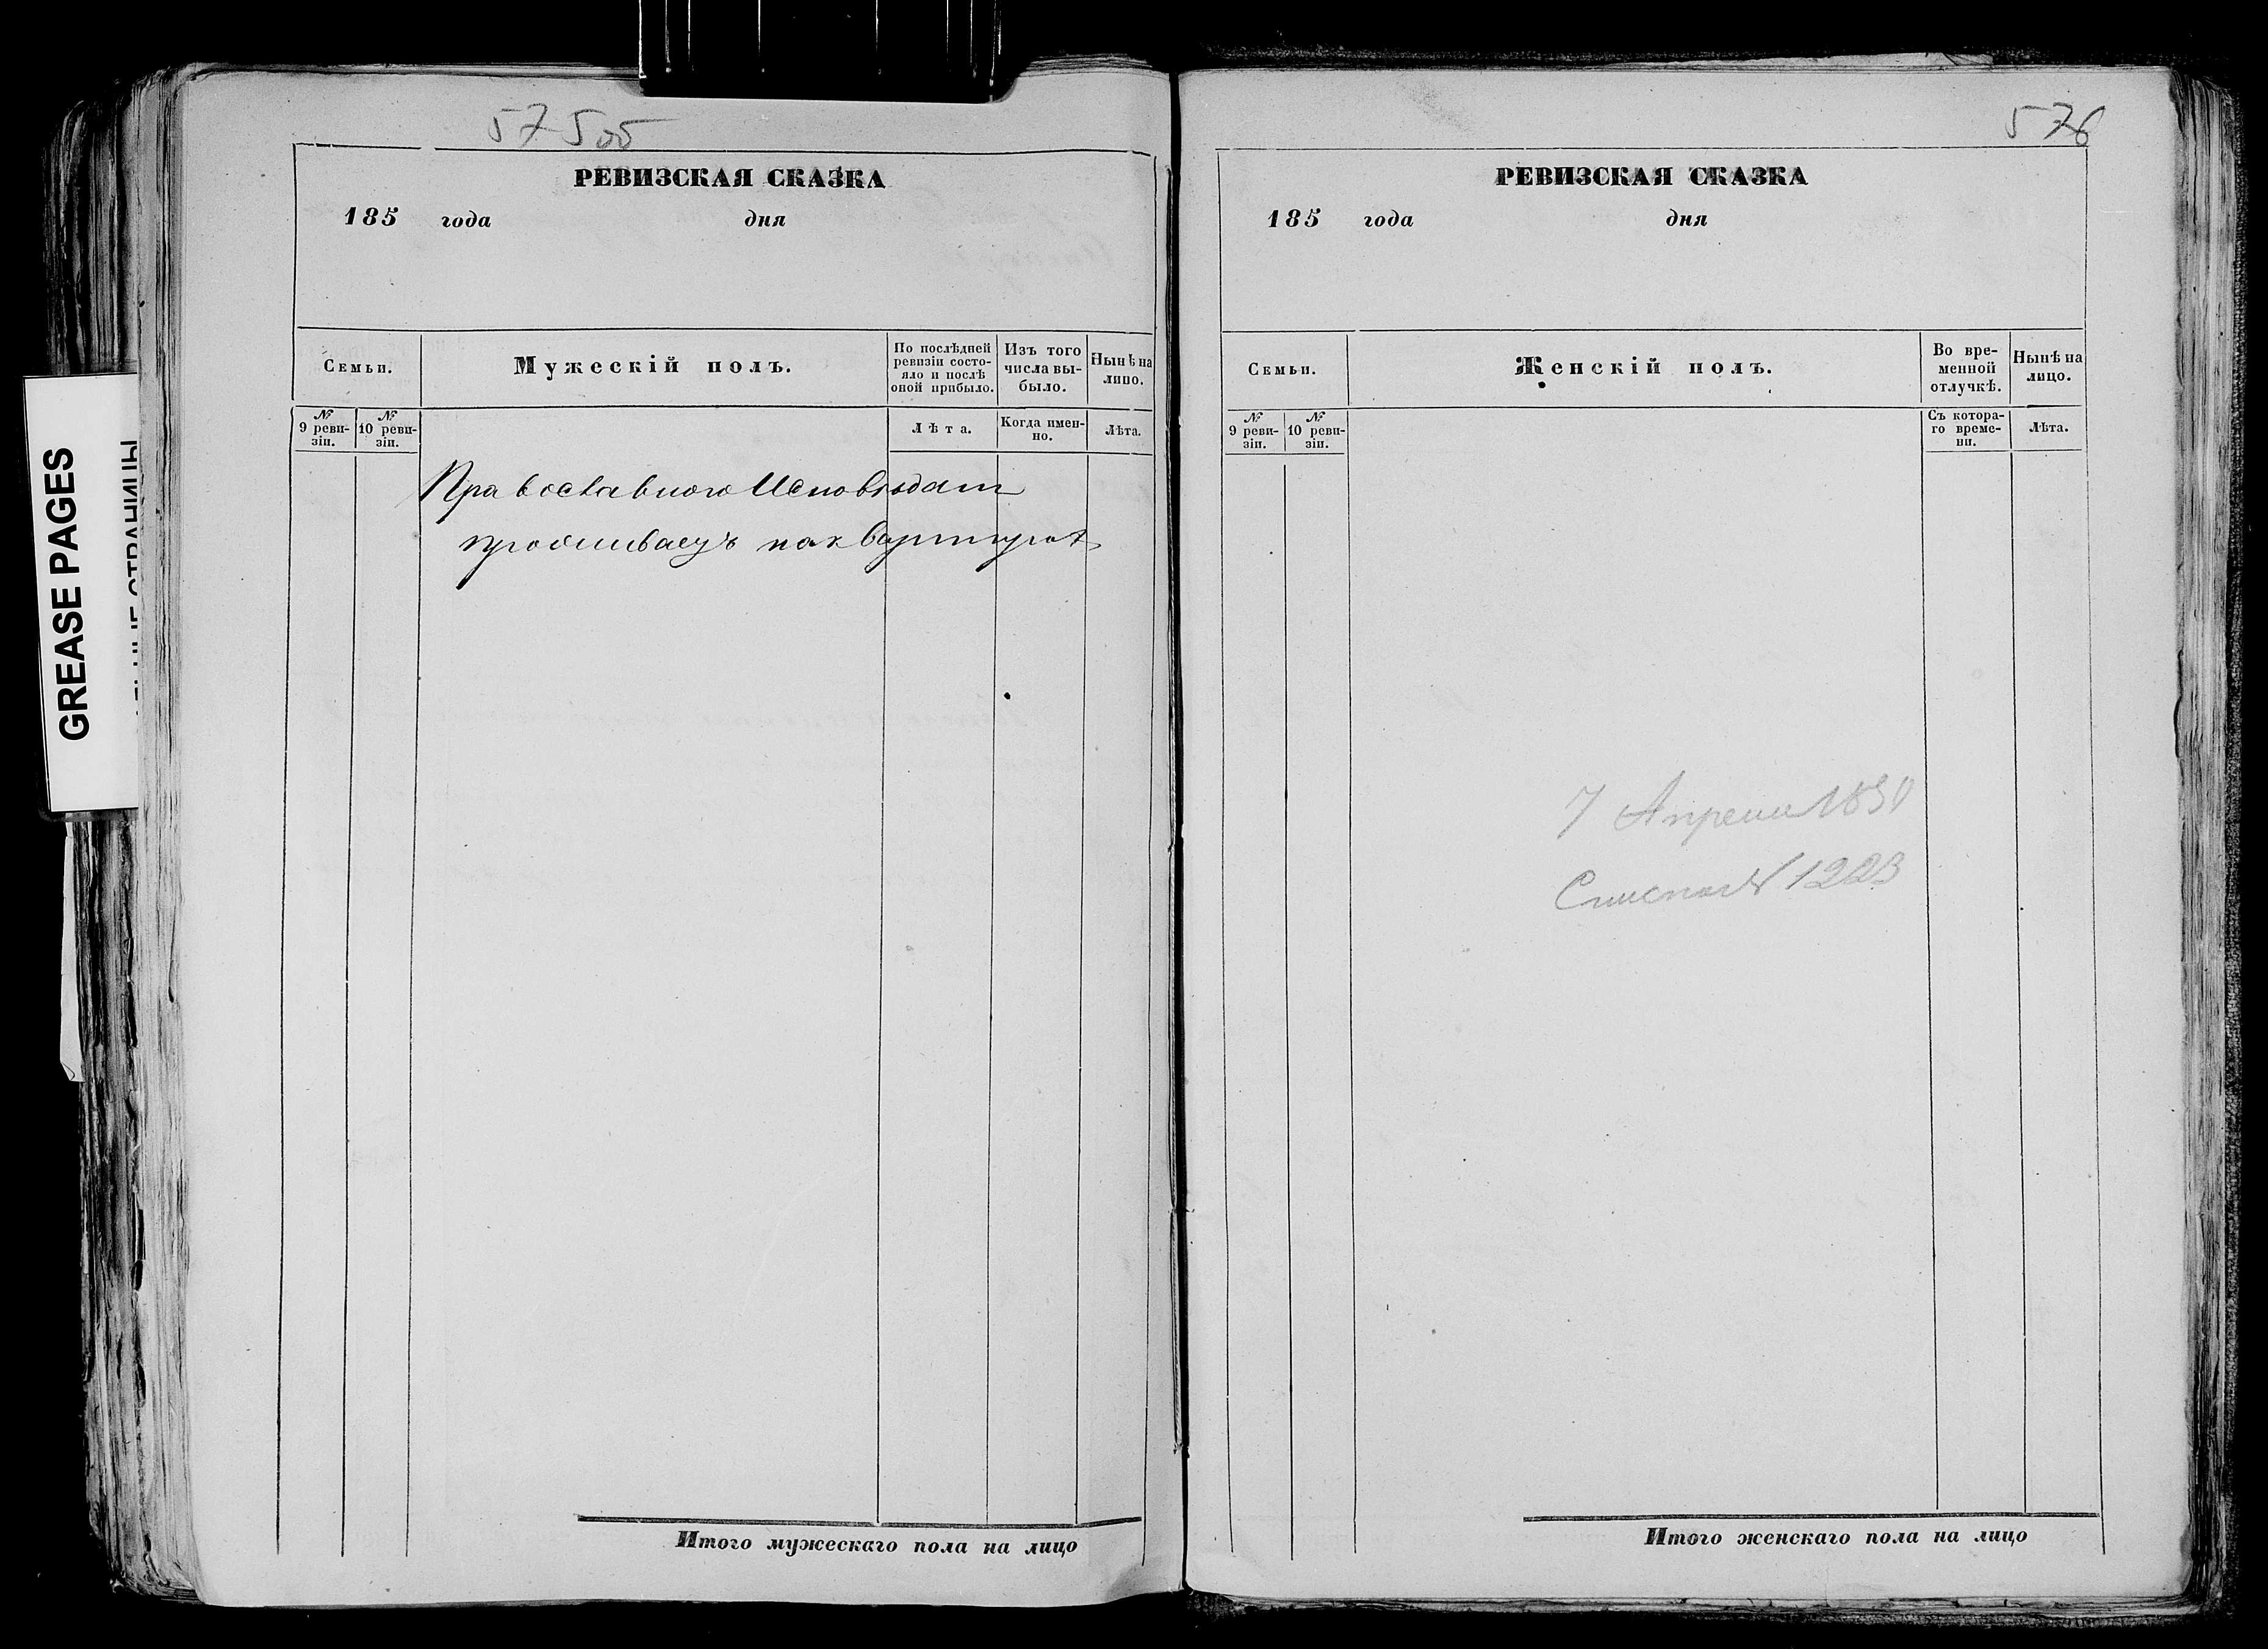 575об
РЕВИЗСКАЯ СКАЗКА
185 года дня
Семьи.
Мужескій полъ.
По послѣдней ревизіи состояло и послѣ оной прибыло.
Изъ того числа выбыло.
Нынѣ на лицо.
№ 9 ревизіи.
№ 10 ревизіи.
Лѣта.
Когда именно.
Лѣта.
Православного Исповѣдат
проживаеъ наквартирѣ
Итого мужескаго пола на лицо
576
РЕВИЗСКАЯ СКАЗКА
185 года дня
Семьи.
Женскій полъ.
Во временной отлучкѣ.
Нынѣ на лицо.
№ 9 ревизіи.
№ 10 ревизіи.
Съ котораго времени.
Лѣта.
7 Апреля
1223
Итого женскаго пола на лицо
GREASE PAGES